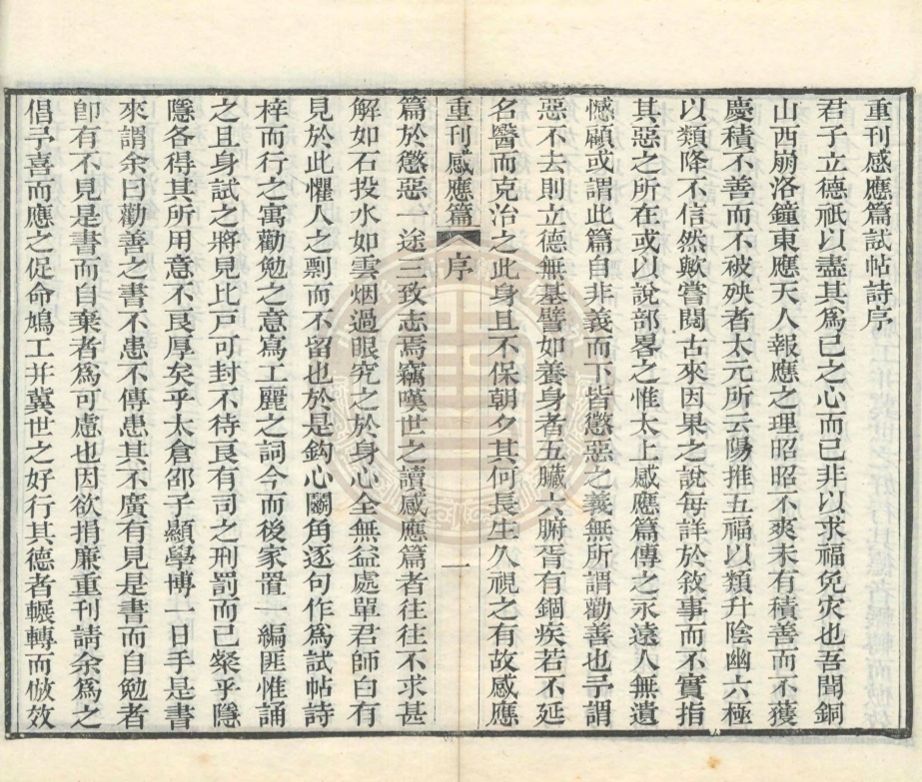 重刊感應篇試帖詩序
君子立德祇以盡其為己之心而已非以求福免灾也吾聞銅
山西崩洛鐘東應天人報應之理昭昭不爽未有積善而不獲
慶積不善而不被殃者太元所云陽推五福以類升陰幽六極
以類降不信然歟嘗閱古來因果之說每詳於敘事而不實指
其惡之所在或以說部畧之惟太上感應篇傳之永遠人無遺
憾顧或謂此篇自非義而下皆懲惡之義無所謂勸善也予謂
惡不去則立德無基譬如養身者五臟六腑胥有錮疾若不延
名醫而克治之此身且不保朝夕其何長生久視之有故感應
重刊感應篇 序 一
篇於懲惡一途三致志焉竊嘆世之讀感應篇者往往不求甚
解如石投水如雲烟過眼究之於身心全無益處單君師白有
見於此懼人之剽而不留也於是鈎心鬭角逐句作為試帖詩
梓而行之寓勸勉之意寫工麗之詞今而後家置一編匪惟誦
之且身試之將見比戶可封不待艮有司之刑罰而已粲乎隱
隱各得其所用意不艮厚矣乎太倉邵子顯學博一日手是書
來謂余曰勸善之書不患不傳患其不廣有見是書而自勉者
卽有不見是書而自棄者為可慮也因欲捐廉重刊請余為之
倡予喜而應之促命鳩工并冀世之好行其德者輾轉而倣效